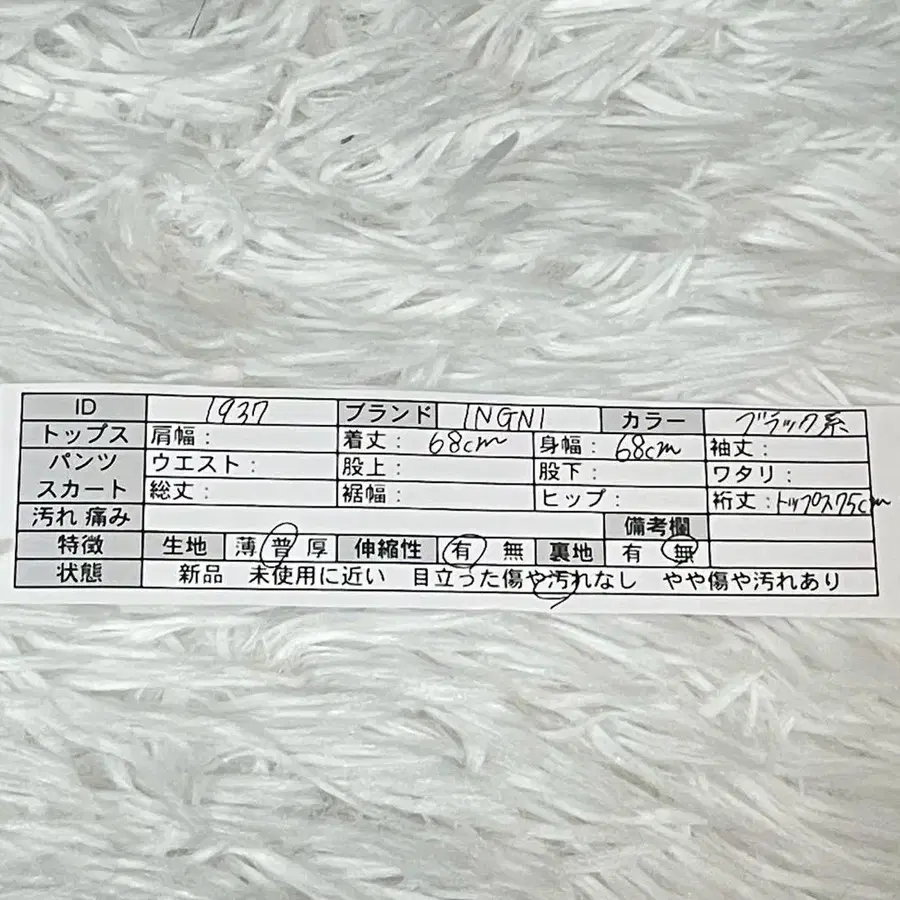 ID 1937 ブランド INGNI カラー ブラック系
トップス 肩幅： 着丈： 68cm 身幅： 68cm 袖丈：
パンツ ウエスト： 股上： 股下： ワタリ：
スカート 総丈： 裾幅： ヒップ： 裄丈：トップス75cm
汚れ 痛み 備考欄
特徴 生地 薄 普 厚 伸縮性 有 無 裏地 有 無
状態 新品 未使用に近い 目立った傷や汚れなし やや傷や汚れあり